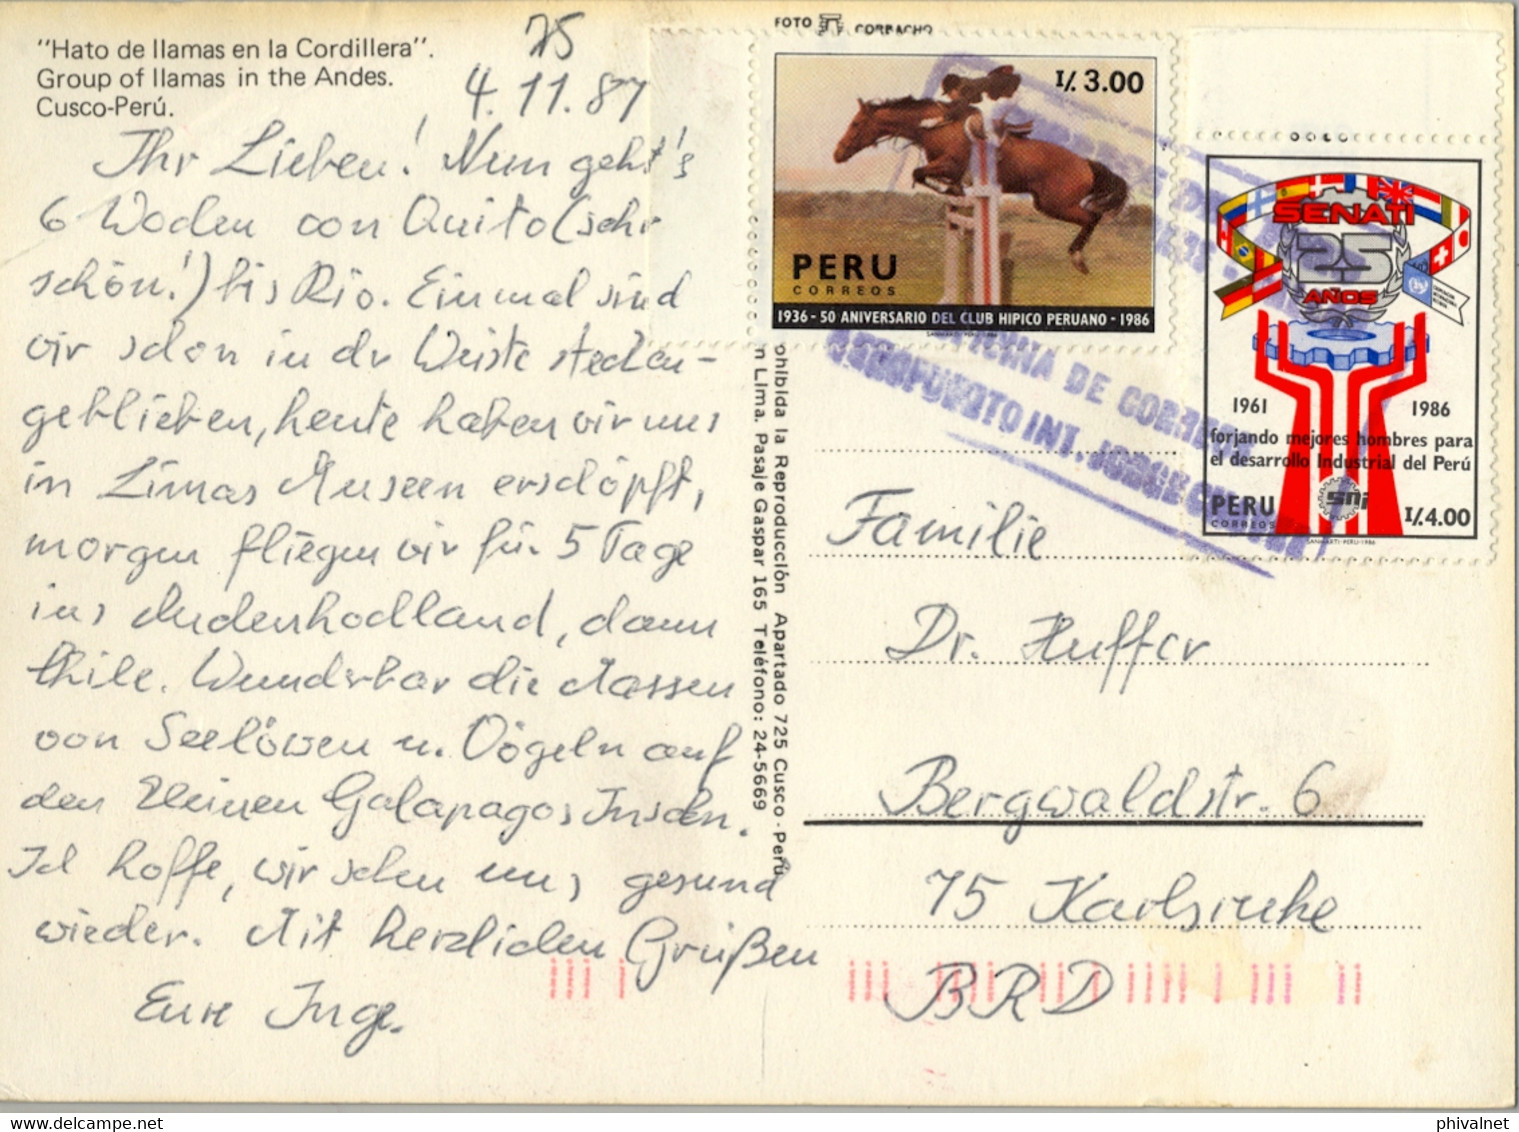 "Hato de llamas en la Cordillera".
Group of llamas in the Andes.
Cusco-Perú.
75
4.11.87
Ihr Lieben! Nun geht's
6 Wochen von Quito (sehr
schön!) bis Rio. Einmal sind
wir schon in der Wüste stecken-
geblieben, heute haben wir uns
in Limas Museen erschöpft,
morgen fliegen wir für 5 Tage
ins Andenhochland, dann
Chile. Wunderbar die Massen
von Seelöwen u. Vögeln auf
den kleinen Galapagos Inseln.
Ich hoffe, wir sehen uns gesund
wieder. Mit herzlichen Grüßen
Eure Inge.
FOTO CORBACHO
ohibida la Reproducción Apartado 725 Cusco - Perú
n Lima. Pasaje Gaspar 165 Teléfono: 24-5669
I/. 3.00
PERU
CORREOS
1936 - 50 ANIVERSARIO DEL CLUB HIPICO PERUANO - 1986
SENATI
25
AÑOS
1961 1986
forjando mejores hombres para
el desarrollo Industrial del Perú
PERU
CORREOS
sni
I/. 4.00
SANMARTI-PERU-1986
DE CORREOS
AEROPUERTO INT. JORGE
Familie
Dr. Huffer
Bergwaldstr. 6
75 Karlsruhe
BRD
phivalnet